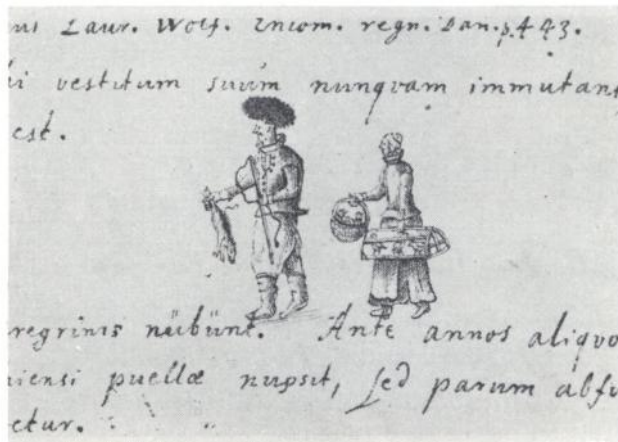 Laur. Wolf. Encom. regn. Dan. p. 443.
vestitum suum nunqvam immutant
est.
regrinis nübünt. Ante annos aliqvo
niensi puellæ nupsit, sed parum abfu
etur.